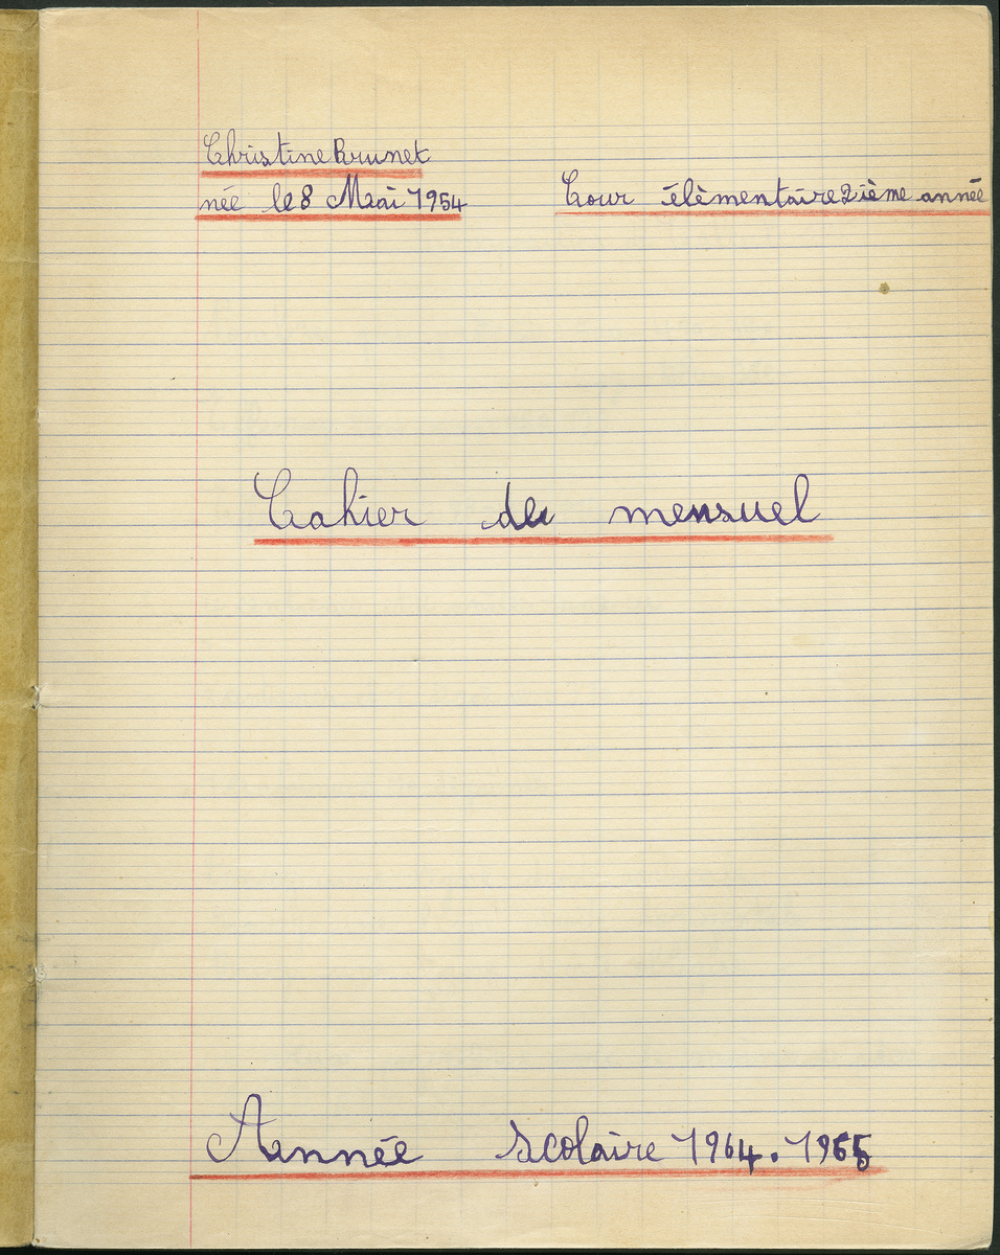 Christine Brunet
née le 8 Mai 1954
Cour élèmentaire 2ième année
Cahier du mensuel
Année scolaire 1964. 1965